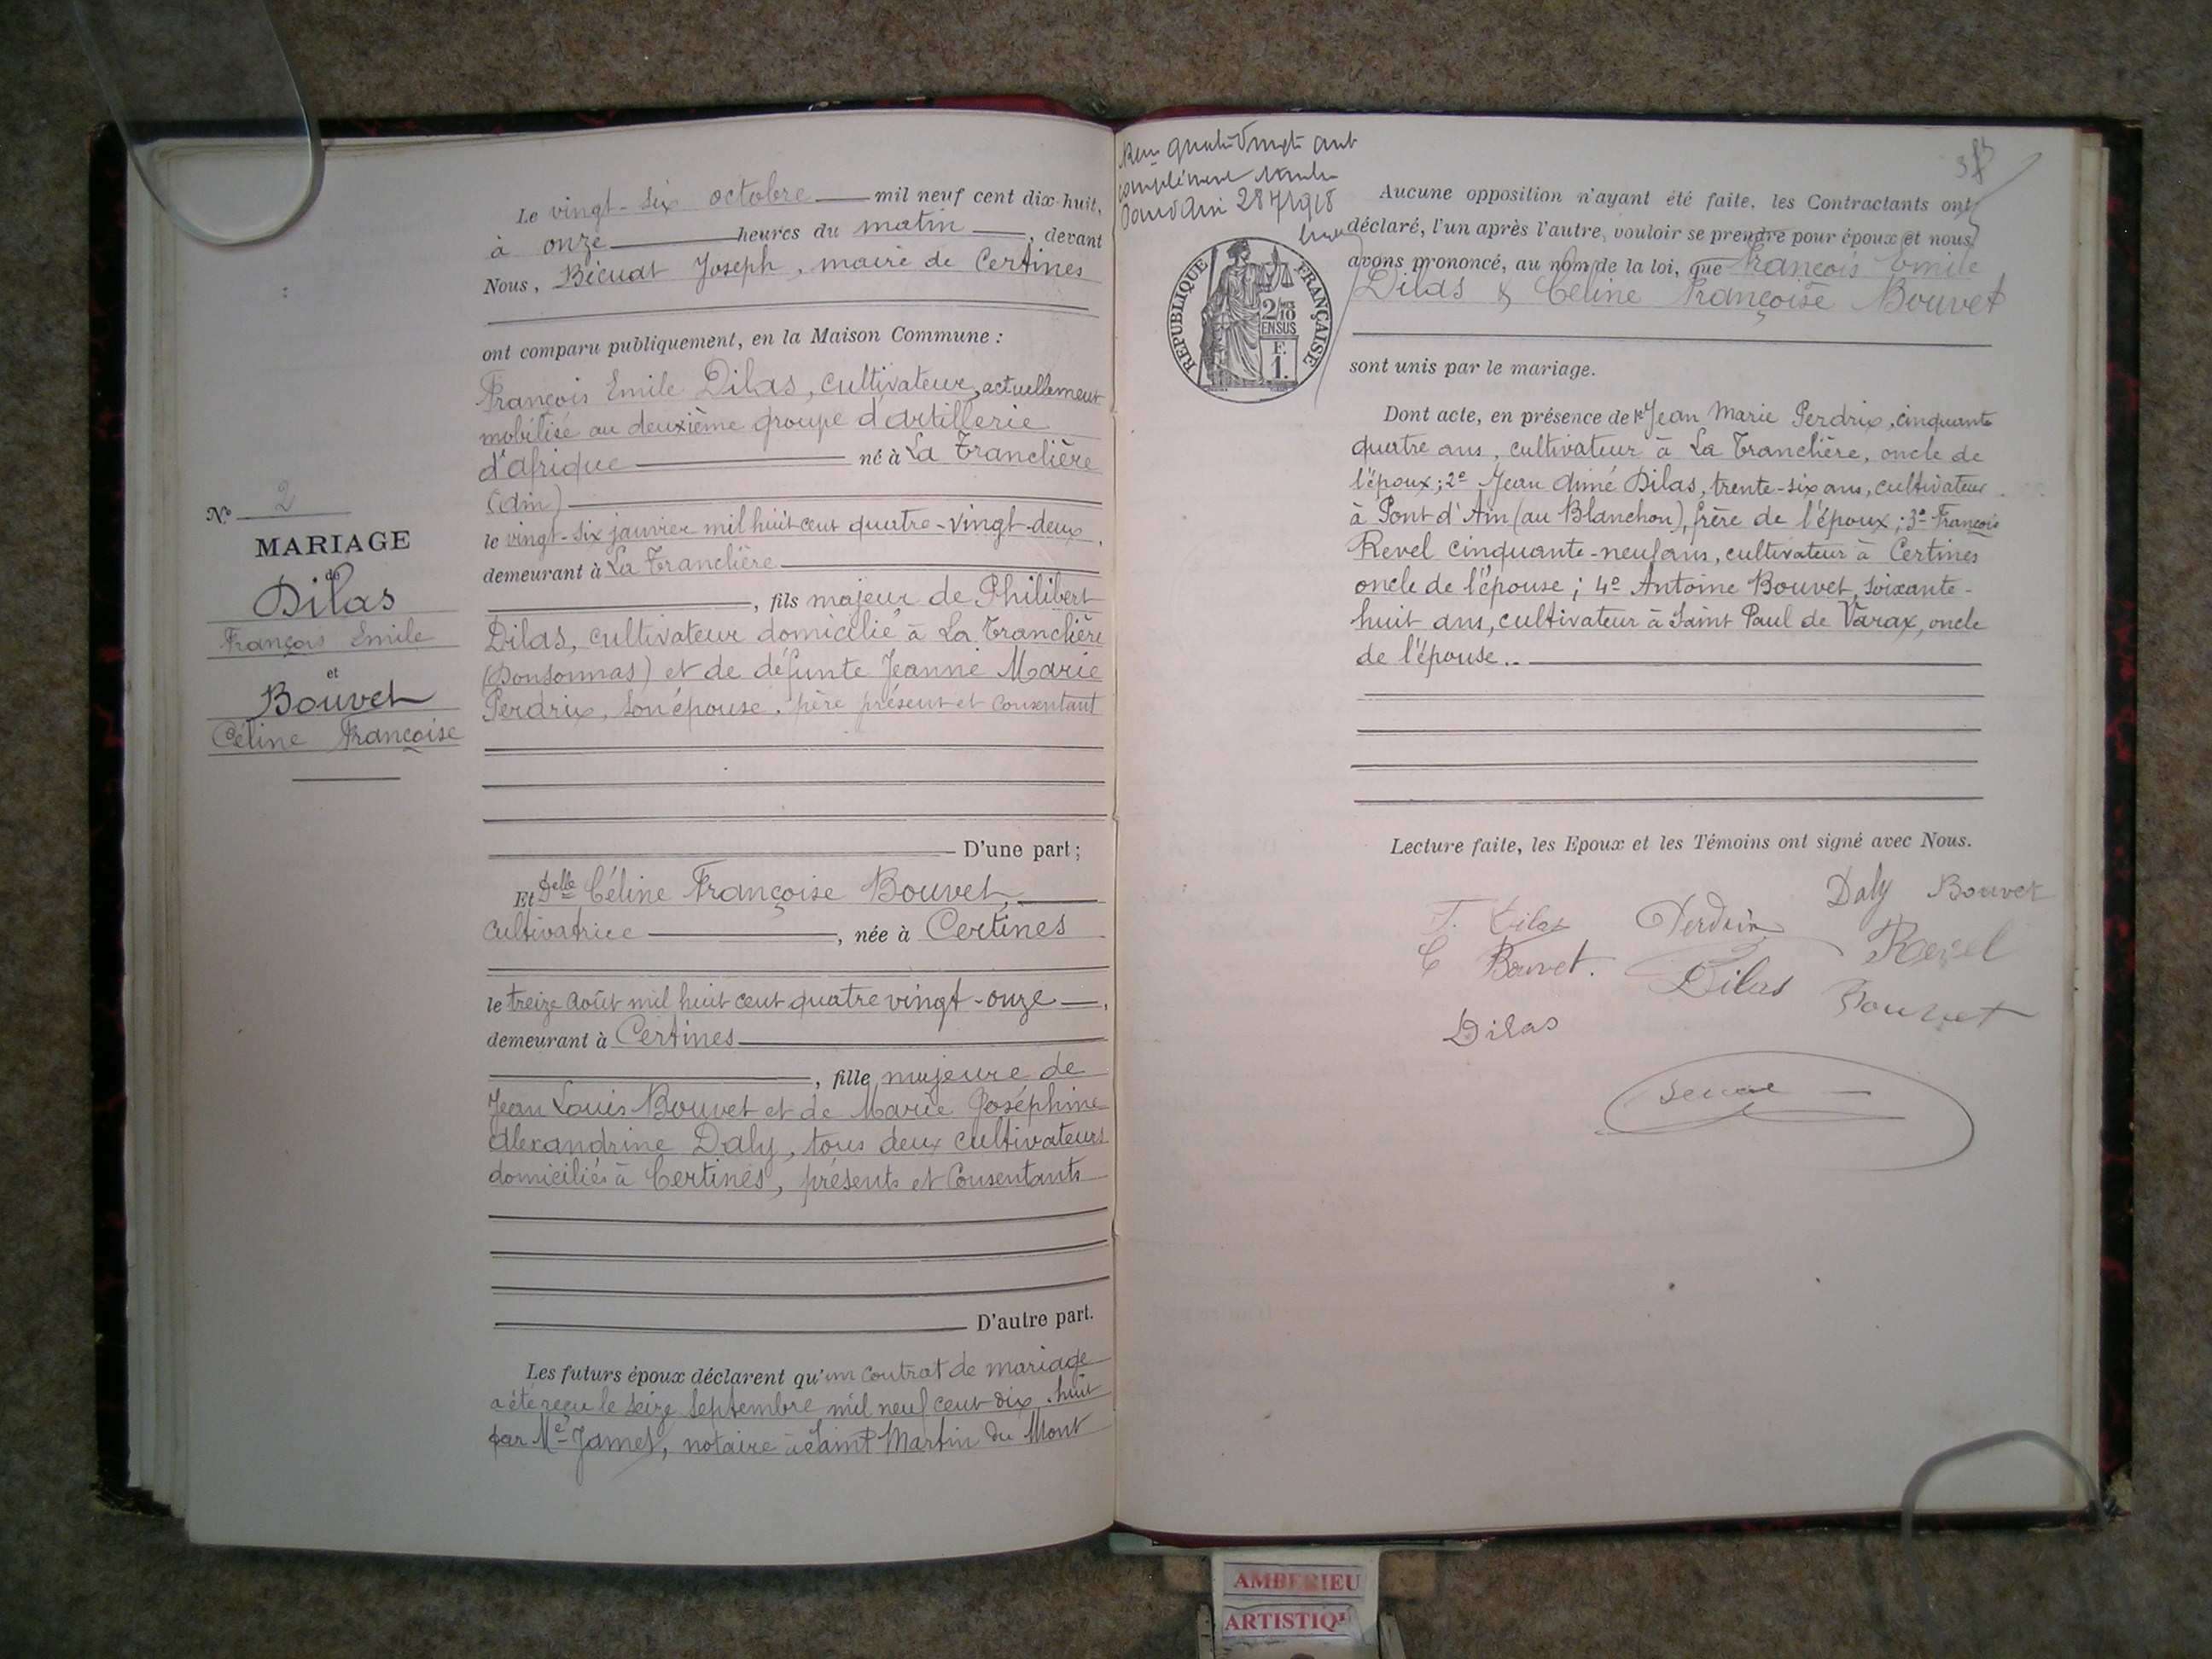 Le vingt-six octobre mil neuf cent dix-huit,
à onze heures du matin, devant
Nous, Bécuat Joseph, maire de Certines
ont comparu publiquement, en la Maison Commune :
François Emile Dilas, cultivateur, actuellement
mobilisé au deuxième groupe d'artillerie
d'afrique né à La Tranclière
(Ain)
le vingt-six janvier mil huit cent quatre-vingt-deux,
demeurant à La Tranclière
, fils majeur de Philibert
Dilas, cultivateur domicilié à La Tranclière
(Donsonnas) et de défunte Jeanne Marie
Perdrix, son épouse, père présent et consentant
D'une part ;
Et Delle Céline Françoise Bouvet,
cultivatrice, née à Certines
le treize août mil huit cent quatre vingt-onze,
demeurant à Certines
, fille majeure de
Jean Louis Bouvet et de Marie Joséphine
Alexandrine Daly, tous deux cultivateurs
domiciliés à Certines, présents et consentants
D'autre part.
Les futurs époux déclarent qu'un contrat de mariage
a été reçu le seize septembre mil neuf cent dix-huit
par Me Jamet, notaire à Saint Martin du Mont
No 2
MARIAGE
de
Dilas
François Emile
et
Bouvet
Céline Françoise
complément
REPUBLIQUE FRANÇAISE
2/10
EN SUS
F.
1.
Aucune opposition n'ayant été faite, les Contractants ont
déclaré, l'un après l'autre, vouloir se prendre pour époux et nous
avons prononcé, au nom de la loi, que François Emile
Dilas & Céline Françoise Bouvet
sont unis par le mariage.
Dont acte, en présence de 1o Jean Marie Perdrix, cinquante
quatre ans, cultivateur à La Tranclière, oncle de
l'époux ; 2e Jean Aimé Dilas, trente-six ans, cultivateur
à Pont d'Ain (au Blanchon), frère de l'époux ; 3e François
Revel cinquante-neuf ans, cultivateur à Certines
oncle de l'épouse ; 4e Antoine Bouvet, soixante-
huit ans, cultivateur à Saint Paul de Varax, oncle
de l'épouse..
Lecture faite, les Epoux et les Témoins ont signé avec Nous.
Daly Bouvet
F. Dilas Perdrix
C Bouvet. Revel
Dilas Bouvet
Dilas
AMBERIEU
ARTISTIQU